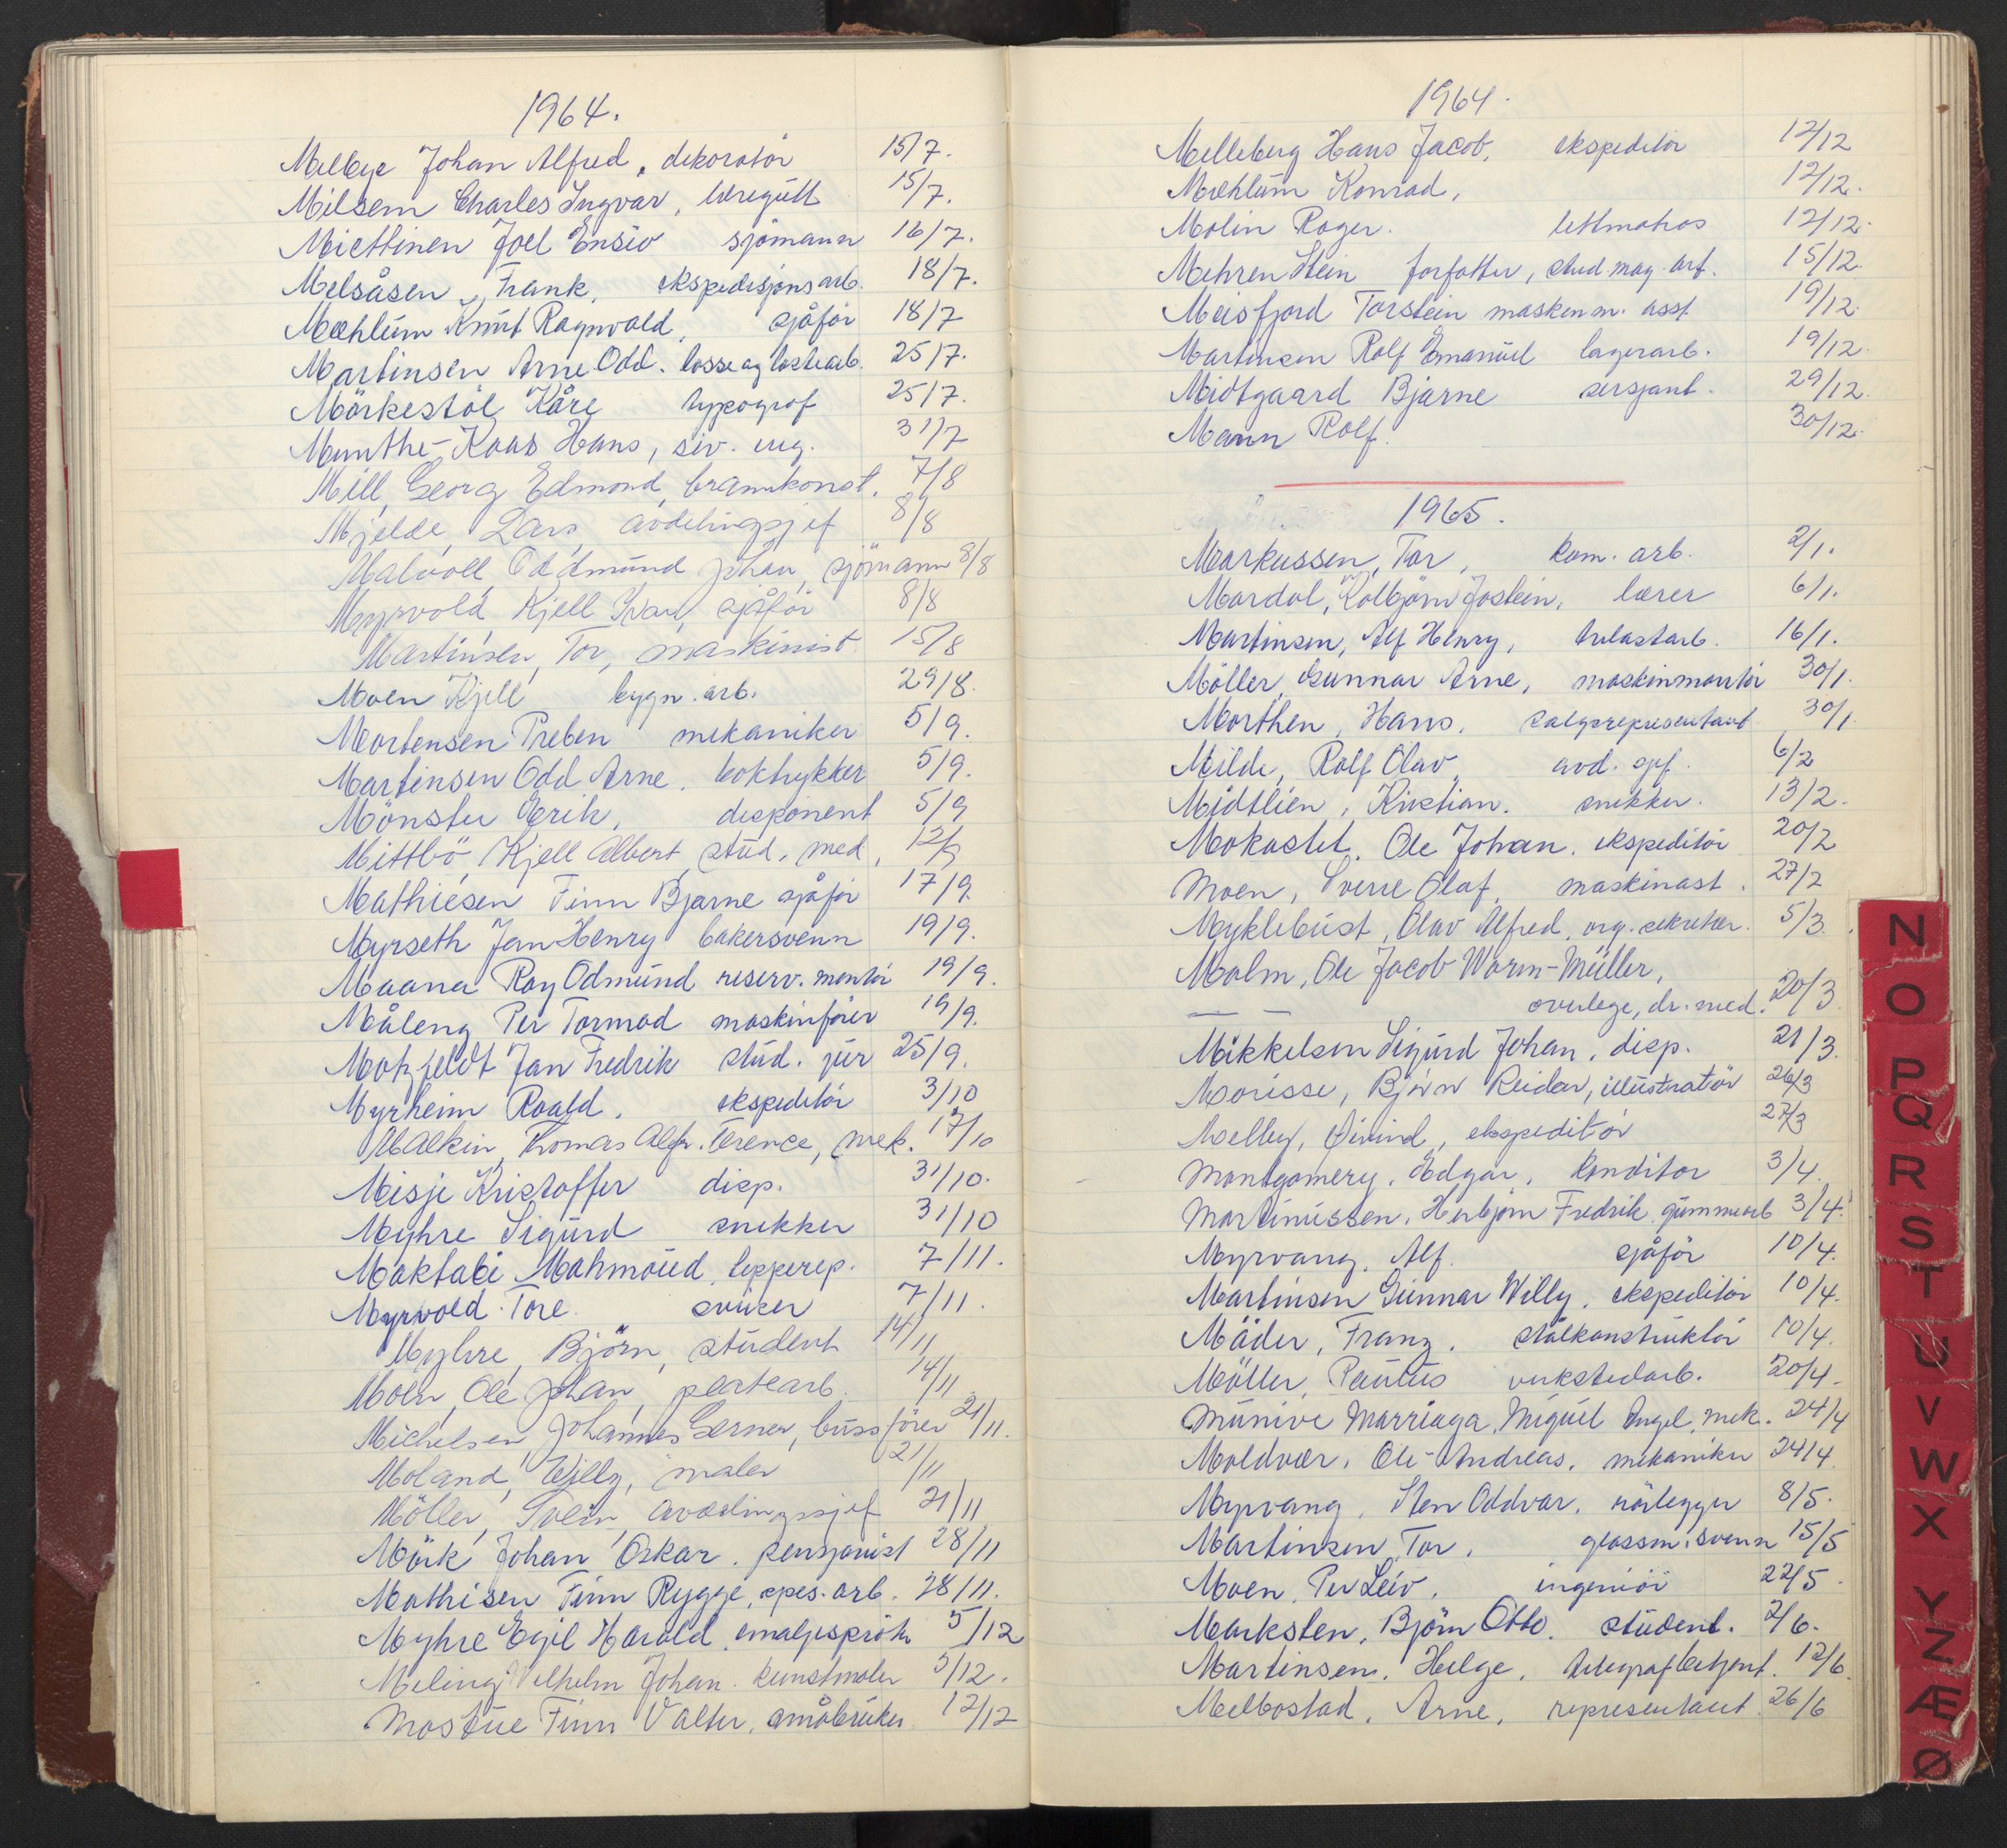 1964.
Melbye Johan Alfred, dekoratör 15/7.
Milsem Charles Ingvar, læregutt 15/7.
Miettinen Joel Ensio sjömann 16/7.
Melsåsen, Frank, ekspedisjonsarb. 18/7.
Mæhlum Knut Ragnvald, sjåför 18/7
Martinsen Arne Odd. losse og lastearb. 25/7.
Mörkestöl Kåre typograf 25/7.
Munthe-Kaas Hans, siv. ing. 31/7
Mill, Georg Edmond, brannkonst. 7/8
Mjelde, Lars, avdelingssjef 8/8
Malvoll Oddmund Johan, sjömann 8/8
Myrvold Kjell Ivar, sjåför 8/8
Martinsen, Tor, maskinist 15/8
Moen Kjell bygn. arb. 29/8.
Mortensen Preben mekaniker 5/9.
Martinsen Odd Arne, boktrykker 5/9.
Mönster Erik, disponent 5/9
Mittbö, Kjell Albert, stud. med, 12/9
Mathiesen Finn Bjarne sjåför 17/9.
Myrseth Jan Henry bakersvenn 19/9.
Maana Roy Odmund reserv. montör 19/9.
Måleng Per Tormod maskinförer 19/9.
Motzfeldt Jan Fredrik stud. jur 25/9.
Myrheim Roald, ekspeditör 3/10
Malkin, Thomas Alfr. Terence, mek. 17/10
Misje Kristoffer disp. 31/10.
Myhre Sigurd snekker 31/10
Maktabi Mahmoud, tepperep. 7/11.
Myrvold Tore. 7/11.
Myhre, Björn, student 14/11
Moen, Ole Johan, platearb. 14/11
Michelsen, Johannes Gerner, bussförer 21/11.
Moland, Willy, maler 21/11
Möller, Svein, avdelingssjef 21/11
Mörk Johan Oskar. pensjonist 28/11
Mathisen Finn Rygge, spes. arb. 28/11.
Myhre Egil Harald, emaljespröit 5/12
Meling Vilhelm Johan. kunstmaler 5/12.
Mostue Finn Valter, småbruker 12/12
1964.
Melleberg Hans Jacob, ekspeditör 12/12
Mæhlum Konrad, 12/12.
Molin Roger. lettmatros 12/12.
Mehren Stein forfatter, stud. mag. art. 15/12.
Meisfjord Torstein maskinm. asst 19/12.
Martinsen Rolf Emanuel lagerarb. 19/12.
Midtgaard Bjarne sersjant. 29/12.
Mann Rolf. 30/12.
1965.
Markussen, Tor, kom. arb. 2/1.
Mardal, Kolbjörn Jostein, lærer 6/1.
Martinsen, Alf Henry, 16/1.
Möller, Gunnar Arne, maskinmontör 30/1.
Morthen, Hans. salgsrepresentant 30/1.
Milde, Rolf Olav, avd. sjef. 6/2
Midtlien, Kristian. snekker. 13/2.
Mokastet. Ole Johan. ekspeditör 20/2
Moen, Sverre Olaf, maskinast. 27/2
Myklebust, Olav Alfred, org. sekretær. 5/3.
Malm, Ole Jacob Worm-Müller,
overlege, dr. med. 20/3.
Mikkelsen Sigurd Johan. disp. 21/3.
Morisse, Björn Reidar, illustratör 26/3
Melby, Öivind, ekspeditör 27/3
Montgomery, Edgar, konditor 3/4.
Martinussen. Herbjörn Fredrik gummiarb 3/4.
Myrvang, Alf. sjåför 10/4.
Martinsen Gunnar Willy. ekspeditör 10/4.
Mäder, Franz. stålkonstruktör 10/4.
Möller, Paulus verkstedarb. 20/4.
Munive Marriaga, Miguel Angel, mek. 24/4
Moldvær, Ole-Andreas, mekaniker 24/4.
Myrvang, Sten Oddvar, rörlegger 8/5.
Martinsen Tor, glassm. svenn 15/5
Moen, Per Leiv. ingeniör 22/5.
Marksten, Björn Otto. student. 2/6.
Martinsen, Helge, telegrafbetjent. 12/6.
Melbostad, Arne, representant. 26/6
N
O
P
Q
R
S
T
U
V
W
X
Y
Z
Æ
Ø